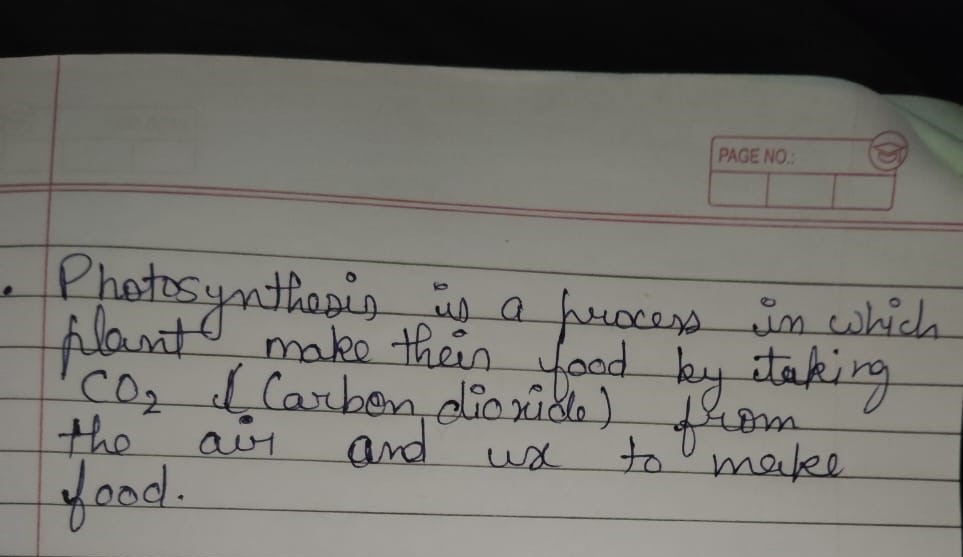 PAGE NO.:
Photosynthesis is a process in which
plant make their food by taking
CO₂ (Carbon dioxide) from
the air and use to make
food.